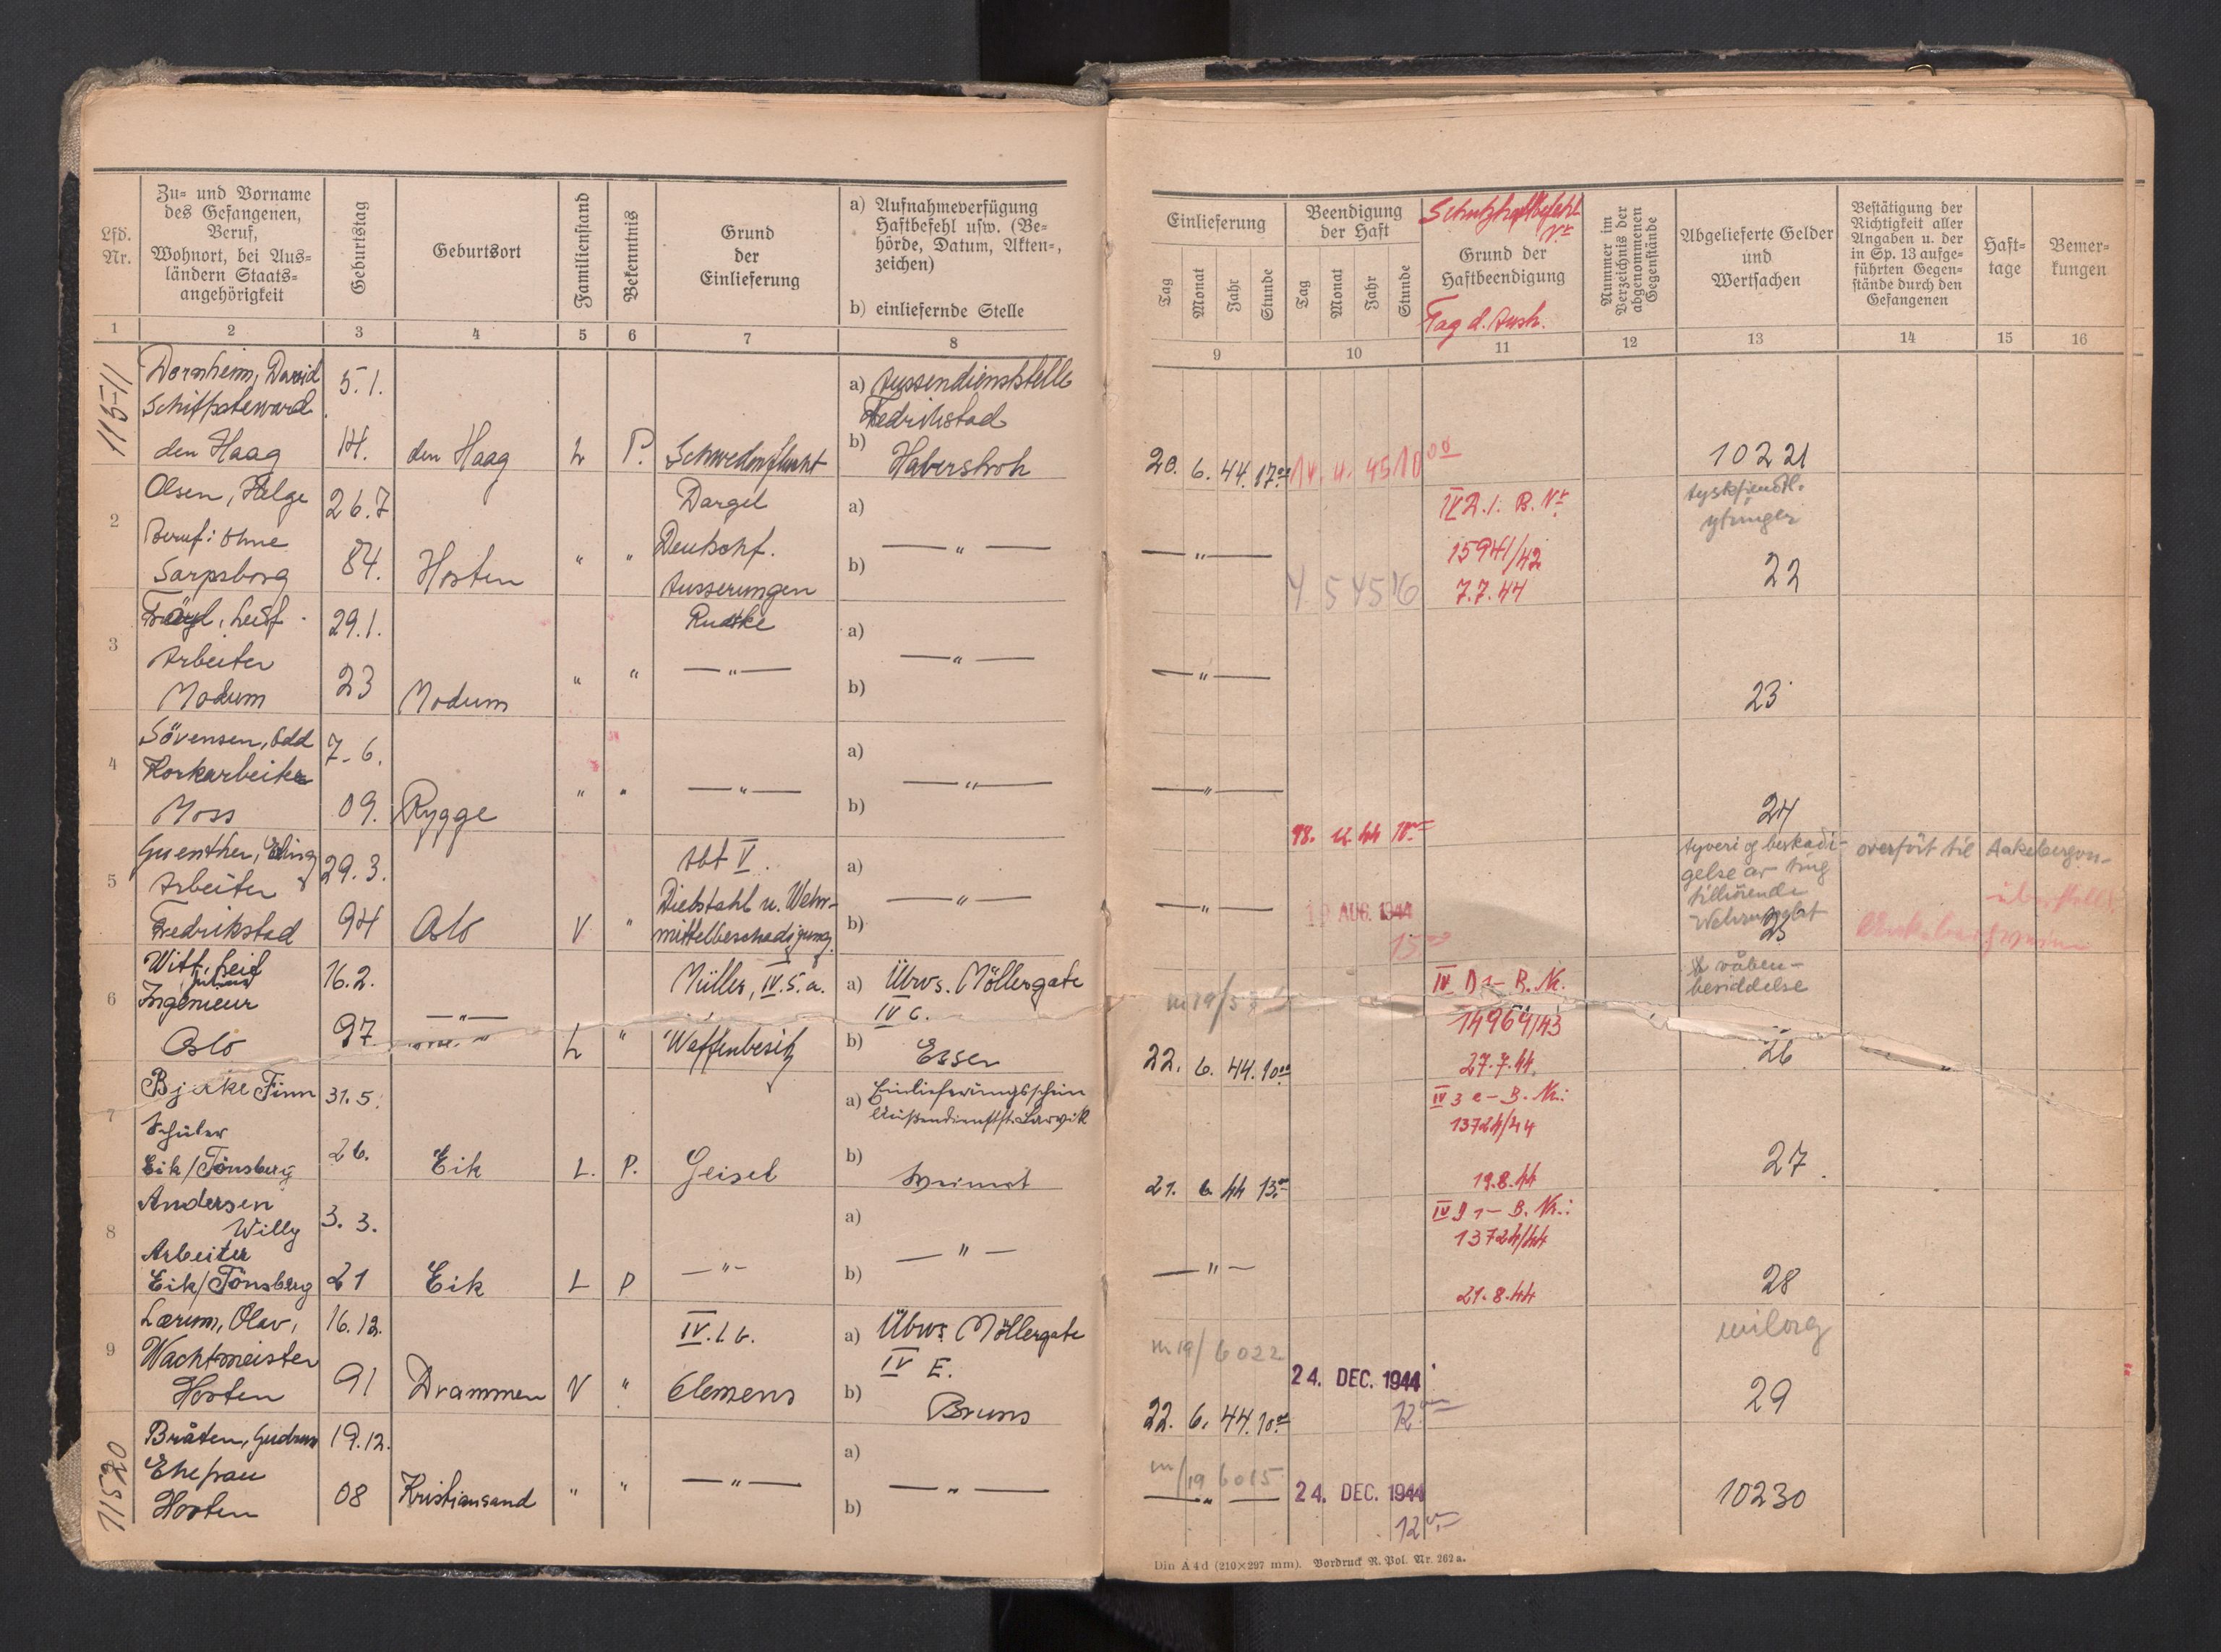 Lfd. Nr.
Zu= und Vorname des Gefangenen, Beruf, Wohnort, bei Aus=ländern Staats=angehörigkeit
Geburtstag
Geburtsort
Familienstand
Bekenntnis
Grund der Einlieferung
a) Aufnahmeverfügung Haftbefehl usw. (Be=hörde, Datum, Akten=, zeichen)
b) einliefernde Stelle
1 2 3 4 5 6 7 8
115-11
Dornheim, David 5.1. a) Aussendienststelle
Schiffsteward Fredrikstad
den Haag 14. den Haag L P. Schwedenflucht b) Haberstroh
Olsen, Helge 26.7 Dargel a)
2
Beruf: ohne Deutschf. — " —
Sarpsborg 84. Horten " " Äusserungen b)
Leif 29.1. a)
3
Arbeiter " " — " — — " —
Modum 23 Modum b)
Sörensen, Odd 7-6. a)
4
Korkarbeiter " " — " — — " —
Moss 09. Rygge b)
Guenther, 29.3. Abt V. a)
5
Arbeiter Diebstahl u. Wehr- — " —
Fredrikstad 94 Oslo V " mittelbeschadigung b)
Witt, Leif 16.2. Müller, IV.5.a. a) Übws. Möllergate
6
Ingenieur — " — IV C.
Oslo 97 L " Waffenbesitz b) Esser
Bjerke Finn 31.5. a) Einlieferungsschein
7
Schüler Außendienstst. Larvik
Eik/Tönsberg 26. Eik L. P. Geisel b)
Andersen
8
Willy 3. 3. a)
Arbeiter — " — — " —
Eik/Tönsberg 21 Eik L P b)
Lærum, Olav, 16.12. IV.1b. a) Übws Möllergate
9
Wachtmeister IV E.
Horten 91 Drammen V " Clemens b) Bruns
Bråten, Gudrun 19.12. a)
11520
Ehefrau — " — — " —
Horten 08 Kristiansand " " b)
Einlieferung
Tag Monat Jahr Stunde
Beendigung der Haft
Tag Monat Jahr Stunde
Schutzhaftbefehl Nr.
Grund der Haftbeendigung
Tag d. Aush.
Nummer im Verzeichnis der abgenommenen Gegenstände
Abgelieferte Gelder und Wertsachen
Bestätigung der Richtigkeit aller Angaben u. der in Sp. 13 aufge=führten Gegen=stände durch den Gefangenen
Haft=tage
Bemer=kungen
9 10 11 12 13 14 15 16
20. 6. 44. 17.00 10221
IV D.1. B. Nr tyskfiendtl.
ytringer
— " — 15941/42
7 5 45 16 7.7.44 22
— " — 23
— " — 24
18. 12 44
tyveri og beskadi-
overført til Aakebergvn-
gelse av ting
tilhörende
— " — 19 AUG. 1944 Wehrmacht
15 00 25
IV D 1 – B. Nr. våben-
besiddelse
14964/43
22. 6. 44. 10.00 27.7.44. 26
B. Nr.:
13724/44
21. 6 44 13.00 19.8.44 27
IV D 1 – B. Nr.:
13724/44
— " — 21.8.44 28
m 19/ 6022 milorg
24. DEC. 1944
22. 6. 44. 10.00 12 29
m/19 6015
— " — 24. DEC. 1944 10230
12
Din A 4 d (210×297 mm). Vordruck R. Pol. Nr. 262 a.